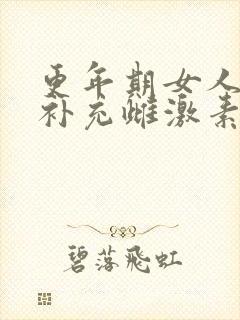 更年期女人
补充雌激素
碧落飛虹